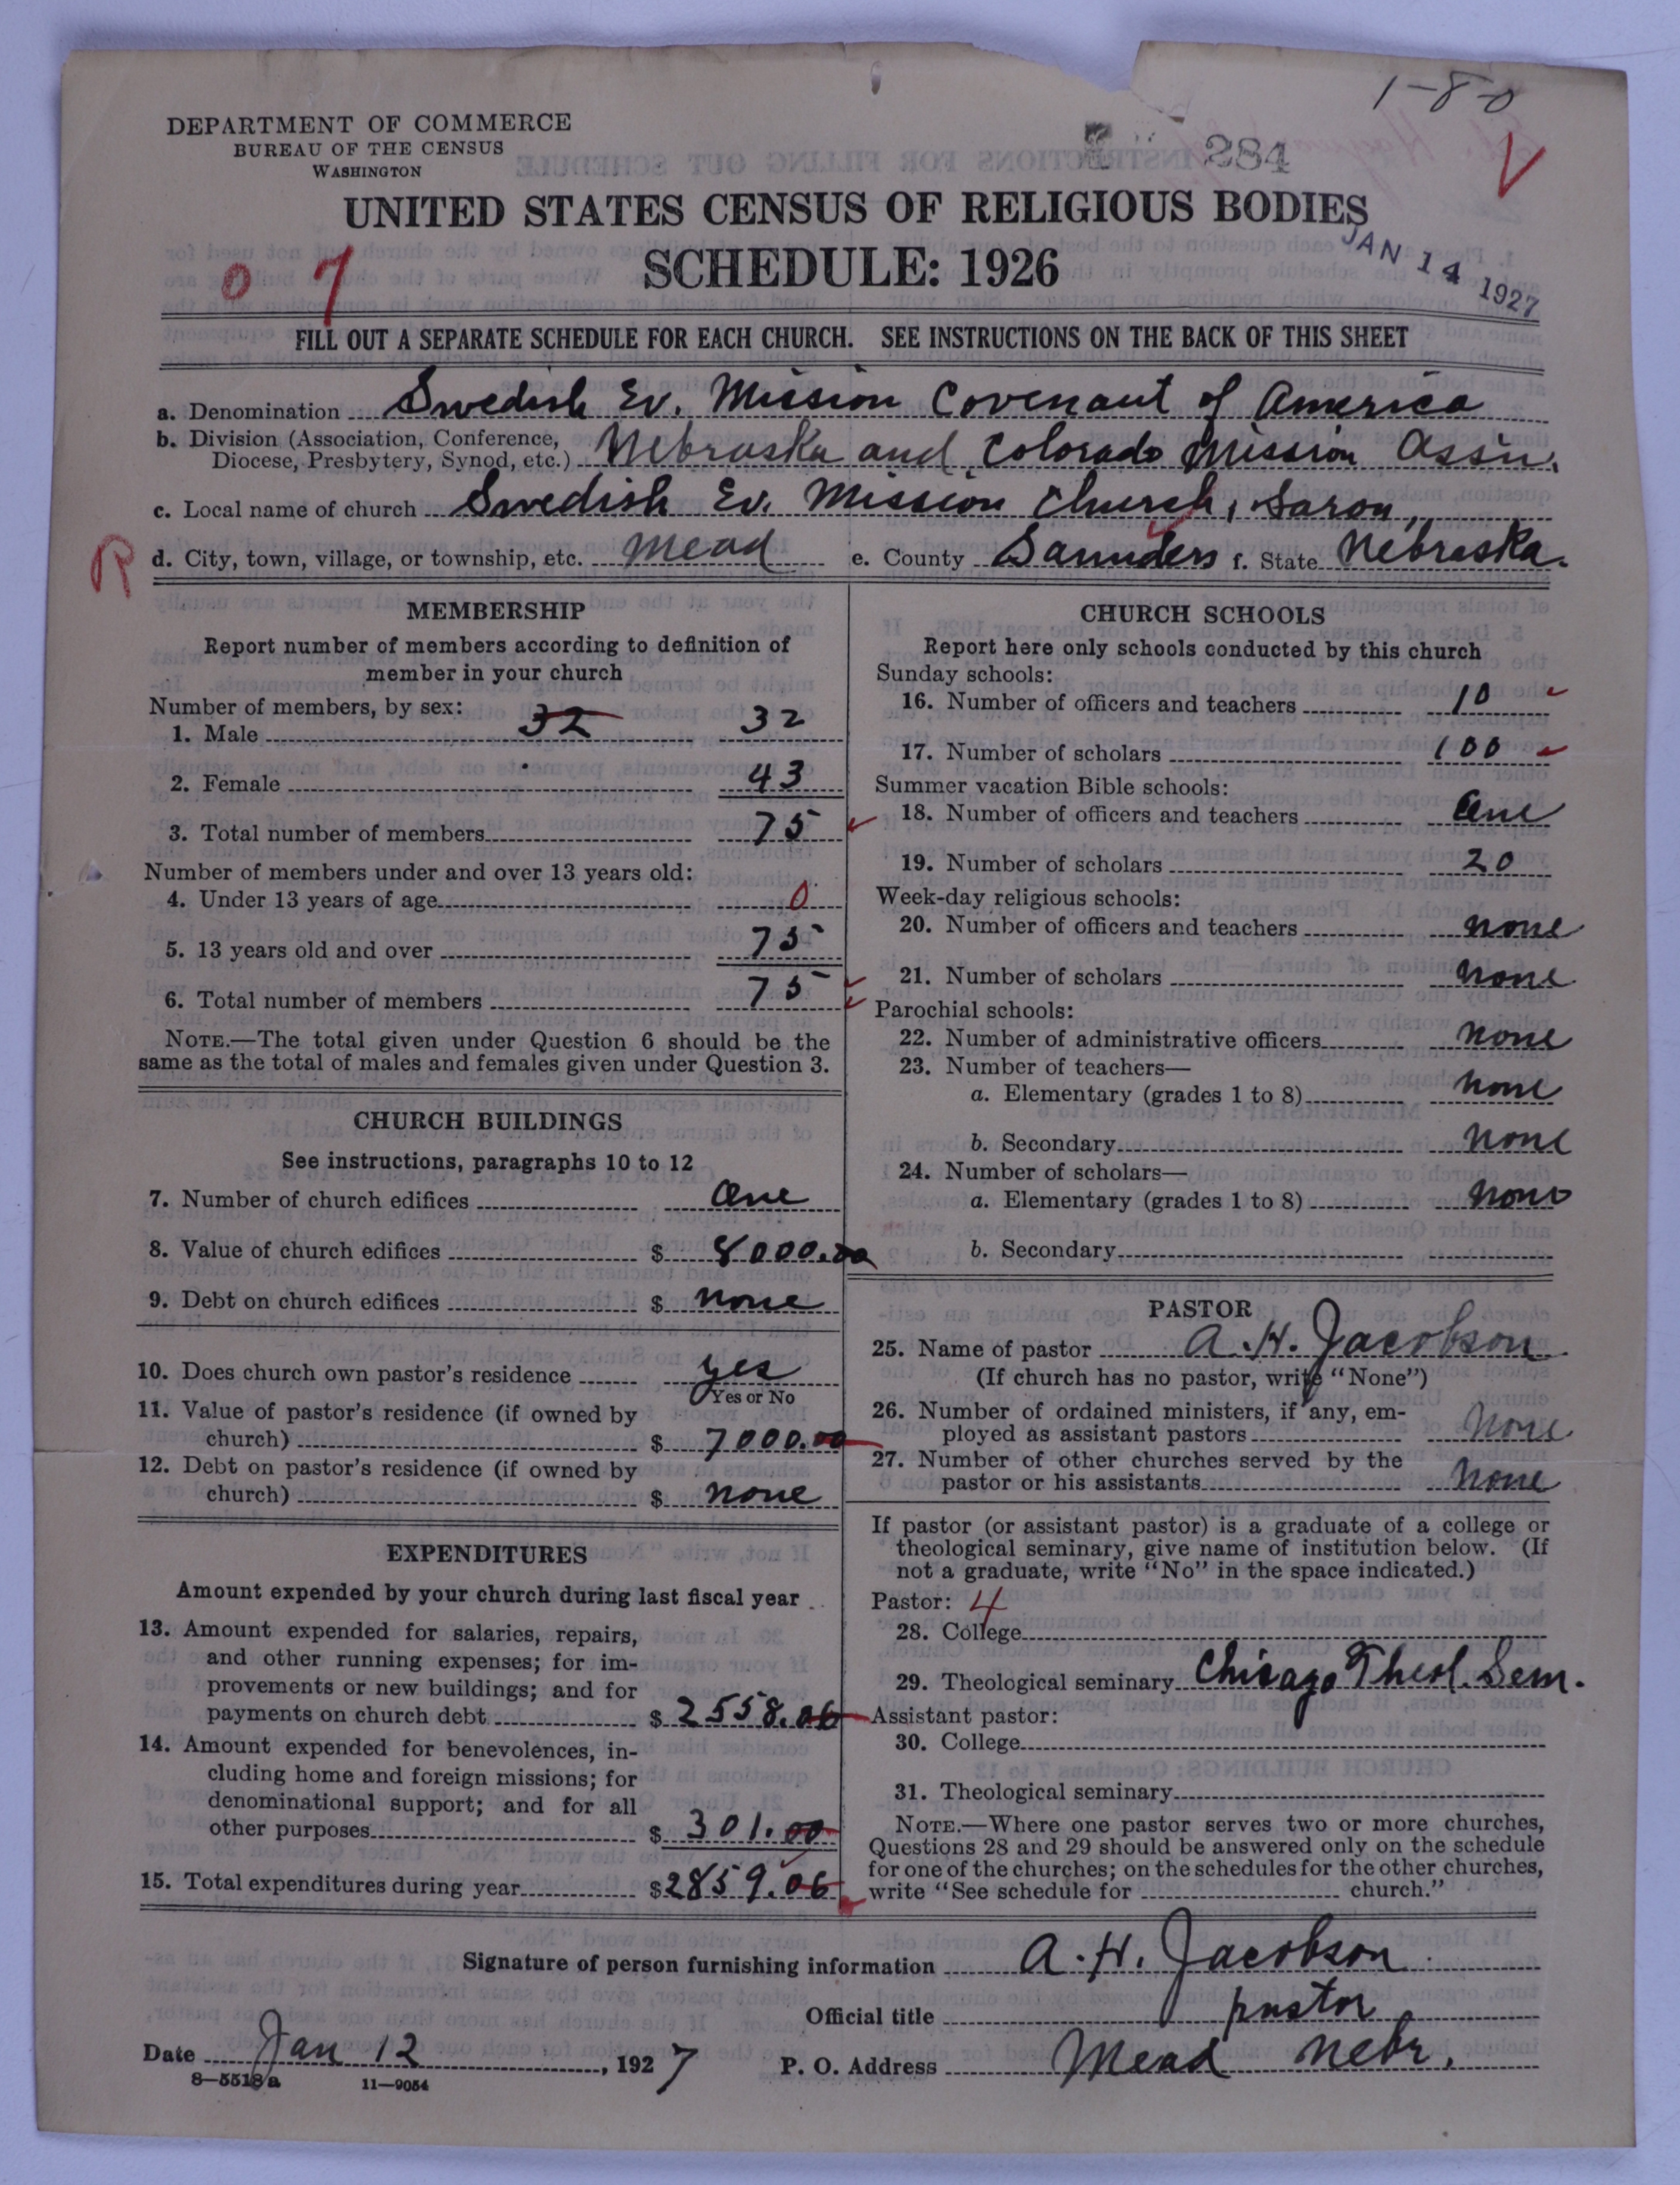 1-8-0
DEPARTMENT OF COMMERCE
BUREAU OF THE CENSUS
WASHINGTON
284
UNITED STATES CENSUS OF RELIGIOUS BODIES
SCHEDULE: 1926
JAN 14 1927
0 7
FILL OUT A SEPARATE SCHEDULE FOR EACH CHURCH. SEE INSTRUCTIONS ON THE BACK OF THIS SHEET
a. Denomination Swedish Ev. Mission Covenant of America
b. Division (Association, Conference, Diocese, Presbytery, Synod, etc.) Nebraska and Colorado Mission Assn.
c. Local name of church Swedish Ev. Mission Church, Saron,
R
d. City, town, village, or township, etc. Mead e. County Saunders f. State Nebraska.
MEMBERSHIP
Report number of members according to definition of
member in your church
Number of members, by sex:
1. Male 32 32
2. Female 43
3. Total number of members 75
Number of members under and over 13 years old:
4. Under 13 years of age 0
5. 13 years old and over 75
6. Total number of members 75
NOTE.—The total given under Question 6 should be the
same as the total of males and females given under Question 3.
CHURCH BUILDINGS
See instructions, paragraphs 10 to 12
7. Number of church edifices One
8. Value of church edifices $ 8000.00
9. Debt on church edifices $ none
10. Does church own pastor's residence yes
Yes or No
11. Value of pastor's residence (if owned by
church) $ 7000.00
12. Debt on pastor's residence (if owned by
church) $ none
EXPENDITURES
Amount expended by your church during last fiscal year
13. Amount expended for salaries, repairs,
and other running expenses; for im-
provements or new buildings; and for
payments on church debt $ 2558.06
14. Amount expended for benevolences, in-
cluding home and foreign missions; for
denominational support; and for all
other purposes $ 301.00
15. Total expenditures during year $2859.06
CHURCH SCHOOLS
Report here only schools conducted by this church
Sunday schools:
16. Number of officers and teachers 10
17. Number of scholars 100
Summer vacation Bible schools:
18. Number of officers and teachers One
19. Number of scholars 20
Week-day religious schools:
20. Number of officers and teachers none
21. Number of scholars none
Parochial schools:
22. Number of administrative officers none
23. Number of teachers—
a. Elementary (grades 1 to 8) none
b. Secondary none
24. Number of scholars—
a. Elementary (grades 1 to 8) none
b. Secondary
PASTOR
25. Name of pastor A. H. Jacobson
(If church has no pastor, write "None")
26. Number of ordained ministers, if any, em-
ployed as assistant pastors None
27. Number of other churches served by the
pastor or his assistants None
If pastor (or assistant pastor) is a graduate of a college or
theological seminary, give name of institution below. (If
not a graduate, write "No" in the space indicated.)
Pastor: 4
28. College
29. Theological seminary Chicago Theol. Sem.
Assistant pastor:
30. College
31. Theological seminary
NOTE.—Where one pastor serves two or more churches,
Questions 28 and 29 should be answered only on the schedule
for one of the churches; on the schedules for the other churches,
write "See schedule for church."
Signature of person furnishing information A. H. Jacobson
Official title pastor
Date Jan 12, 1927 P. O. Address Mead Nebr.
8—5518a 11—9054